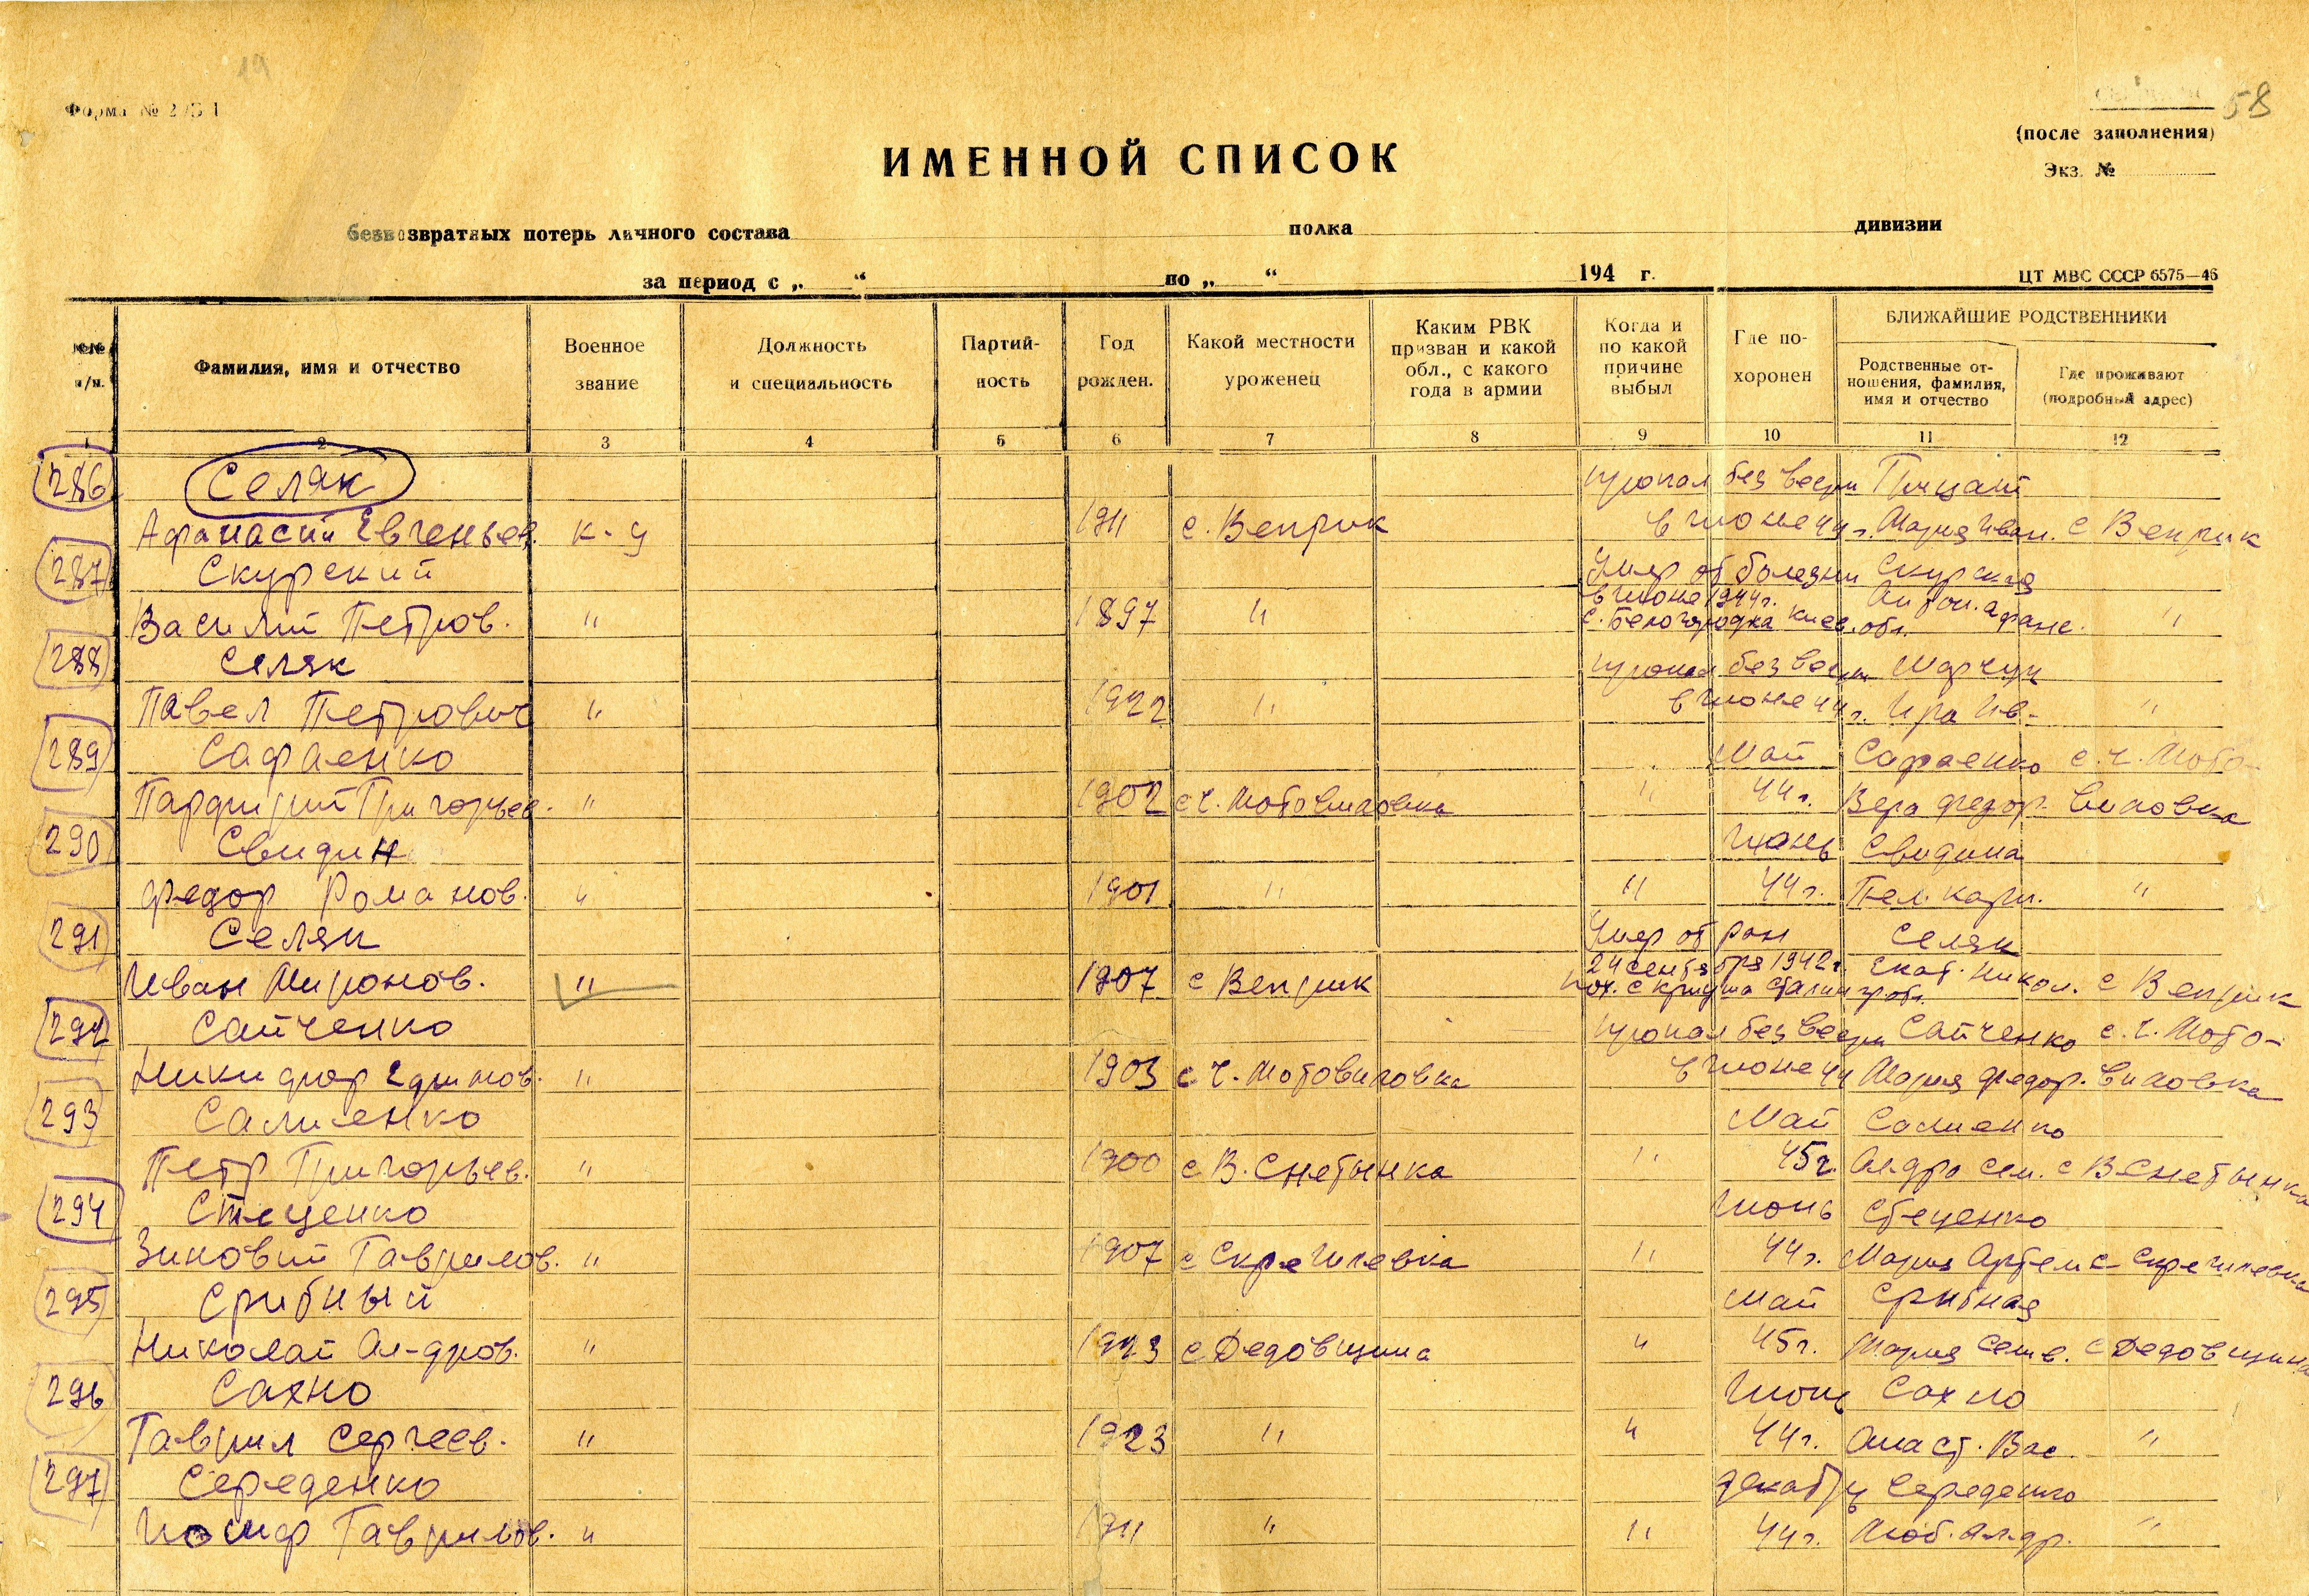 19
Форма № 2
58
(после заполнения)
Экз. №
ИМЕННОЙ СПИСОК
безвозвратных потерь личного состава полка дивизии
за период с „ “ по „ “ 194 г.
ЦТ МВС СССР 6575—46
№№ п/п.
Фамилия, имя и отчество
Военное звание
Должность и специальность
Партийность
Год рожден.
Какой местности уроженец
Каким РВК призван и какой обл., с какого года в армии
Когда и по какой причине выбыл
Где похоронен
БЛИЖАЙШИЕ РОДСТВЕННИКИ
Родственные отношения, фамилия, имя и отчество
Где проживают (подробный адрес)
1 2 3 4 5 6 7 8 9 10 11 12
286 Селяк пропал без вести
Афанасий Евгеньев. к-ц 1911 с. Веприк в июне 44 г. Мария Иван. с Веприк
287 Скурский Умер от болезни Скурская
в июне 1944г.
Василий Петров. " 1897 " с. Белогородка Киев. обл. Афанс. "
288 Селяк пропал без вести Марчук
Павел Петрович " 1922 " в июне 44 г. Ира Ив- "
289 Сафаенко Май Сафаенко с. Ч. Мото-
Парфирий Григорьев. " 1902 с Ч. Мотовиловка " 44 г. Вера Федор. виловка
290 Свидин Июнь Свидина
Федор Романов. " 1901 " " 44 г. Пел. Карп. "
291 Селяк Умер от ран Селяк
24 сентября 1942г. Екат. Никол. с Веприк
Иван Миронов. " 1907 с Веприк пох. с
292 Сайченко пропал без вести Сайченко с. Ч. Мото-
Никифор Ефимов. " 1903 с Ч. Мотовиловка в июне 44 Мария Федор. виловка
293 Салиенко Май Салиенко
Петр Григорьев. " 1900 с В. Снетынка " 45г. Ал-дра Сем. с В Снетынка
294 Стеценко Июнь Стеценко
Зиновий Гаврилов. " 1907 с Скрегилевка " 44 г. Мария Артем с Скрегилевка
295 Срибный Май Срибная
Николай Ал-дров. " 1923 с Дедовщина " 45г. Мария Сем. с Дедовщина
296 Сахно Июнь Сахно
Гаврил Сергеев. " 1923 " " 44 г. Анаст. Вас. "
297 Середенко Декабрь Середенко
Иосиф Гаврилов. " 1911 " " 44 г. Люб. Ал-др. "